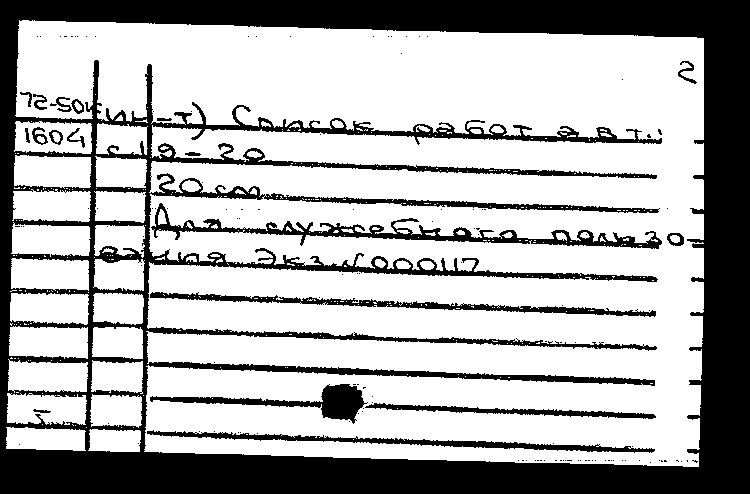 2
72-50к ин-т) Список работ авт.:
1604 с 19-20
20 см
Для служебного пользо-
вания Экз.№000117
5